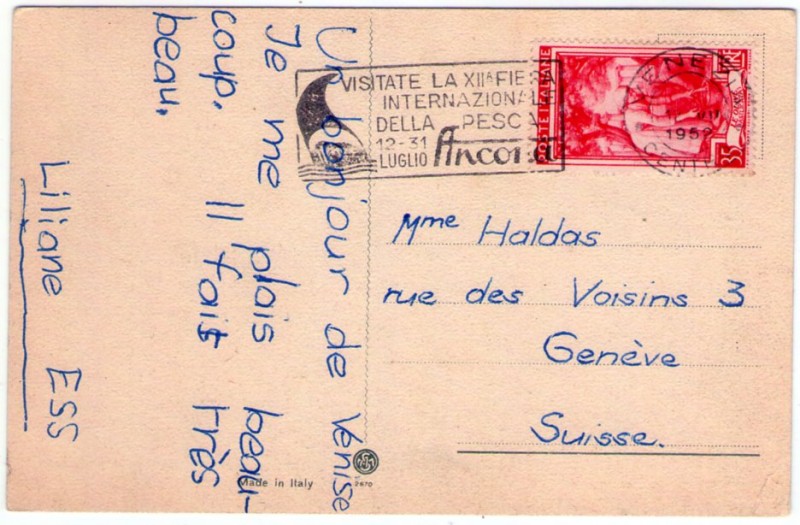 Un bonjour de Venise
Je me plais beau-
coup. Il fait très
beau.
Liliane ESS
VISITATE LA XIIª FIERA
INTERNAZIONALE
DELLA PESCA
12-31
LUGLIO Ancona
POSTE ITALIANE
LIRE
35
VENEZIA
1952
CENTRO
Mme Haldas
rue des Voisins 3
Genève
Suisse.
Made in Italy
2670